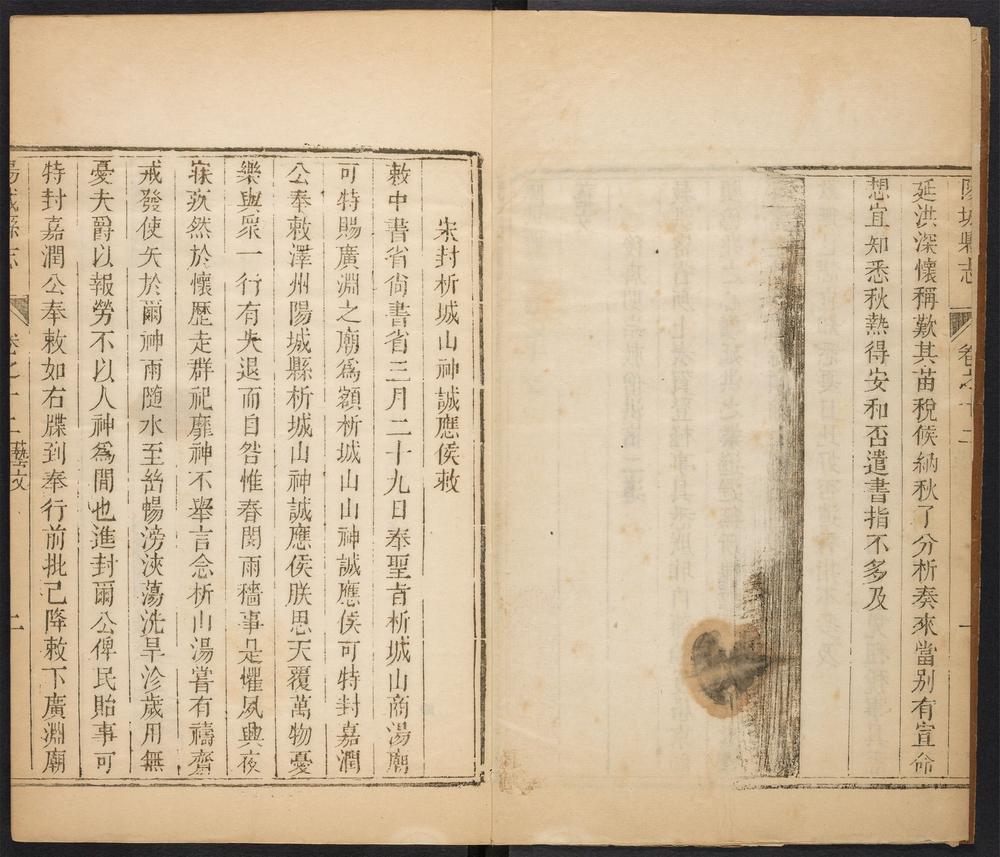 陽城縣志 卷之十二 一
延洪深懷稱歎其苗稅候納秋了分析奏來當别有宣命
想宜知悉秋熱得安和否遣書指不多及
宋封析城山神誠應侯敕
敕中書省尙書省三月二十九日奉聖旨析城山商湯廟
可特賜廣淵之廟爲額析城山山神誠應侯可特封嘉潤
公奉敕澤州陽城縣析城山神誠應侯朕思天覆萬物憂
樂與衆一行有失退而自咎惟春閔雨穡事是懼夙興夜
寐疚然於懷歷走群祀靡神不舉言念析山湯嘗有禱齋
戒發使矢於爾神雨隨水至嵆暢滂浹蕩洗旱沴歲用無
憂夫爵以報勞不以人神爲間也進封爾公俾民貽事可
特封嘉潤公奉敕如右牒到奉行前批已降敕下廣淵廟
陽城縣志 卷之十二 藝文 二